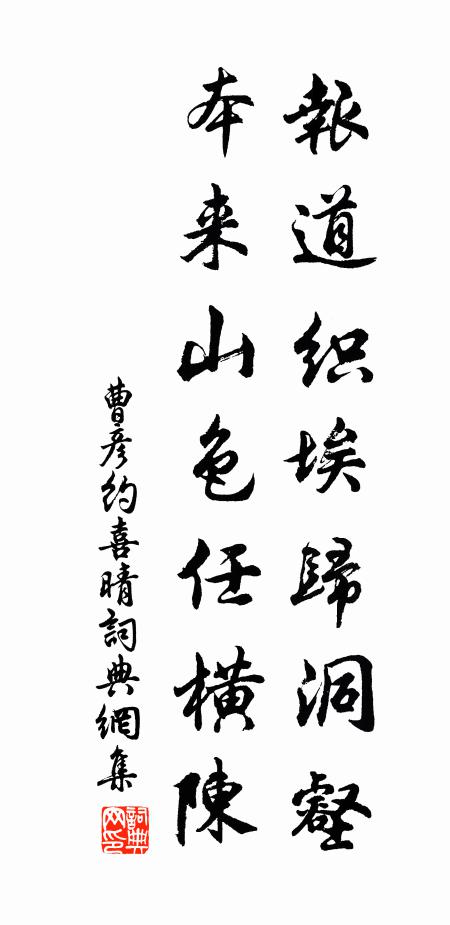 報道织埃歸洞壑
本来山色任橫陳
曹彦约喜晴詞典網集
詞典网印